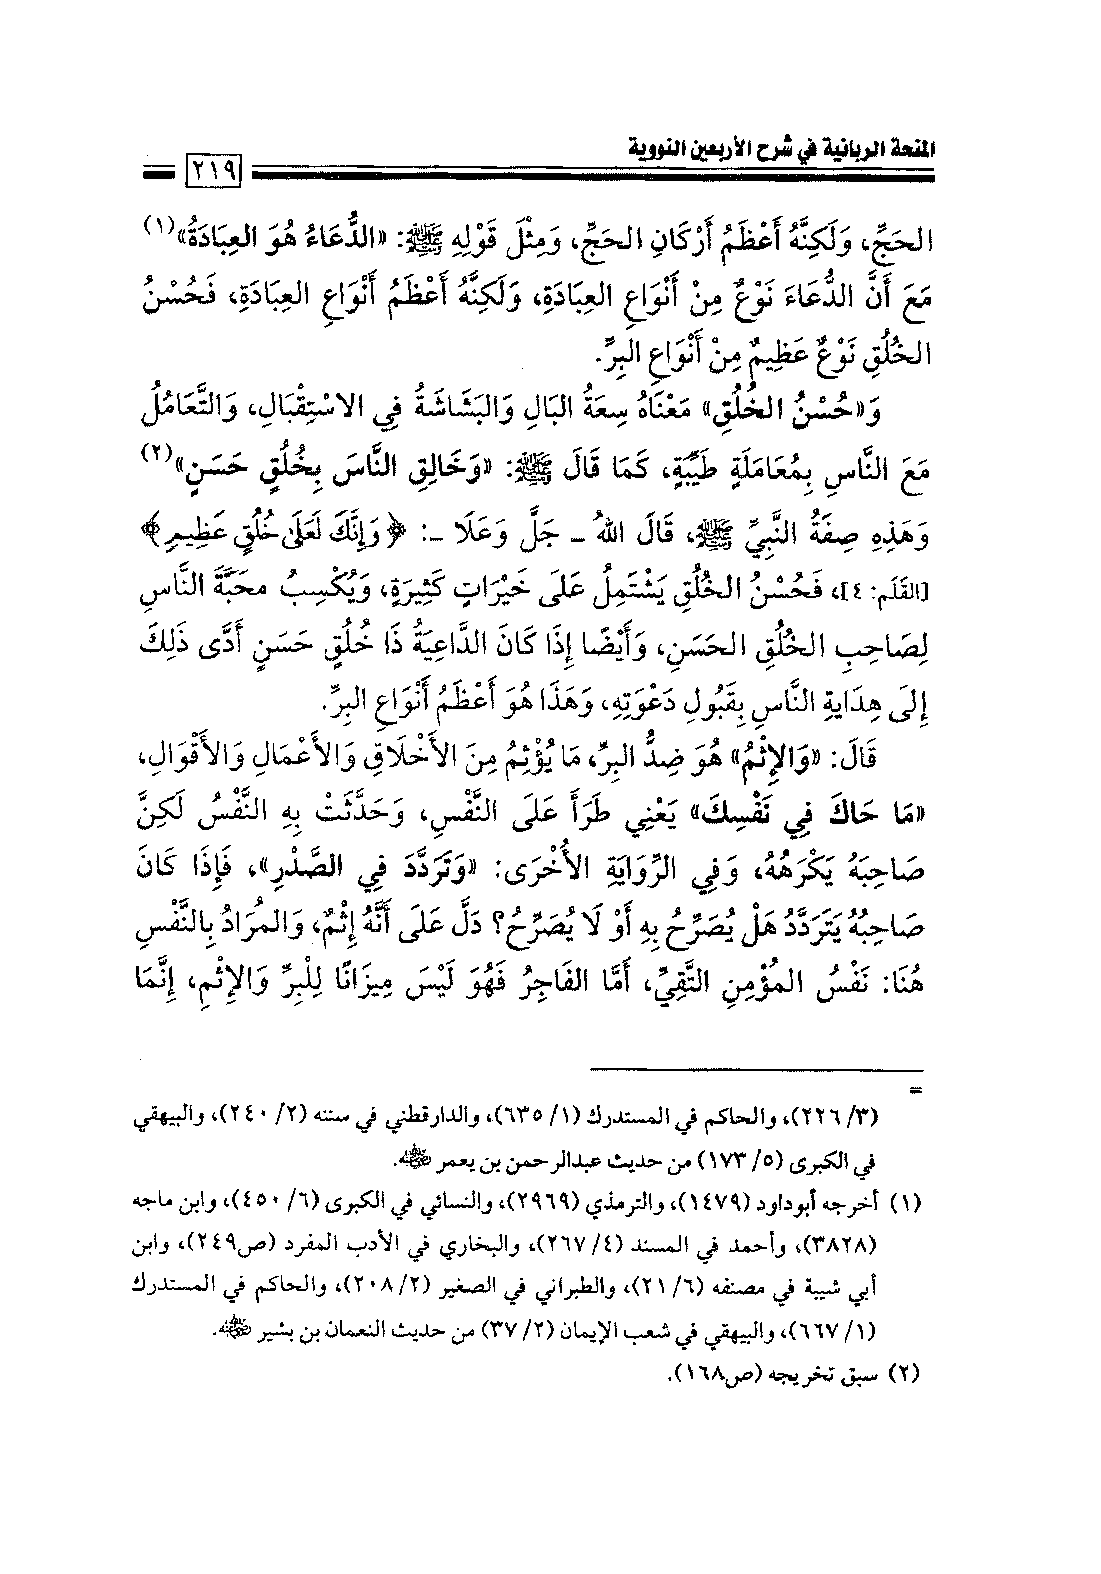 المنحة الربانية في شرح الأربعين النووية
٢١٩
الحَجِّ، وَلَكِنَّهُ أَعْظَمُ أَرْكَانِ الحَجِّ، وَمِثْلَ قَوْلِهِ ﷺ: «الدُّعَاءُ هُوَ العِبَادَةُ»(١)
مَعَ أَنَّ الدُّعَاءَ نَوْعٌ مِنْ أَنْوَاعِ العِبَادَةِ، وَلَكِنَّهُ أَعْظَمُ أَنْوَاعِ العِبَادَةِ، فَحُسْنُ
الخُلُقِ نَوْعٌ عَظِيمٌ مِنْ أَنْوَاعِ البِرِّ.
وَ«حُسْنُ الخُلُقِ» مَعْنَاهُ سِعَةُ البَالِ وَالبَشَاشَةُ فِي الاسْتِقْبَالِ، وَالتَّعَامُلُ
مَعَ النَّاسِ بِمُعَامَلَةٍ طَيِّبَةٍ، كَمَا قَالَ ﷺ: «وَخَالِقِ النَّاسَ بِخُلُقٍ حَسَنٍ»(٢)
وَهَذِهِ صِفَةُ النَّبِيِّ ﷺ، قَالَ اللهُ - جَلَّ وَعَلَا -: ﴿وَإِنَّكَ لَعَلَىٰ خُلُقٍ عَظِيمٍ﴾
[القَلَم: ٤]، فَحُسْنُ الخُلُقِ يَشْتَمِلُ عَلَى خَيْرَاتٍ كَثِيرَةٍ، وَيُكْسِبُ مَحَبَّةَ النَّاسِ
لِصَاحِبِ الخُلُقِ الحَسَنِ، وَأَيْضًا إِذَا كَانَ الدَّاعِيَةُ ذَا خُلُقٍ حَسَنٍ أَدَّى ذَلِكَ
إِلَى هِدَايَةِ النَّاسِ بِقَبُولِ دَعْوَتِهِ، وَهَذَا هُوَ أَعْظَمُ أَنْوَاعِ البِرِّ.
قَالَ: «وَالإِثْمُ» هُوَ ضِدُّ البِرِّ، مَا يُؤْثِمُ مِنَ الأَخْلَاقِ وَالأَعْمَالِ وَالأَقْوَالِ،
«مَا حَاكَ فِي نَفْسِكَ» يَعْنِي طَرَأَ عَلَى النَّفْسِ، وَحَدَّثَتْ بِهِ النَّفْسُ لَكِنَّ
صَاحِبَهُ يَكْرَهُهُ، وَفِي الرِّوَايَةِ الأُخْرَى: «وَتَرَدَّدَ فِي الصَّدْرِ»، فَإِذَا كَانَ
صَاحِبُهُ يَتَرَدَّدُ هَلْ يُصَرِّحُ بِهِ أَوْ لَا يُصَرِّحُ؟ دَلَّ عَلَى أَنَّهُ إِثْمٌ، وَالمُرَادُ بِالنَّفْسِ
هُنَا: نَفْسُ المُؤْمِنِ التَّقِيِّ، أَمَّا الفَاجِرُ فَهُوَ لَيْسَ مِيزَانًا لِلْبِرِّ وَالإِثْمِ، إِنَّمَا
=
(٣/ ٢٢٦)، والحاكم في المستدرك (١/ ٦٣٥)، والدارقطني في سننه (٢/ ٢٤٠)، والبيهقي
في الكبرى (٥/ ١٧٣) من حديث عبدالرحمن بن يعمر رضي الله عنه.
(١) أخرجه أبوداود (١٤٧٩)، والترمذي (٢٩٦٩)، والنسائي في الكبرى (٦/ ٤٥٠)، وابن ماجه
(٣٨٢٨)، وأحمد في المسند (٤/ ٢٦٧)، والبخاري في الأدب المفرد (ص٢٤٩)، وابن
أبي شيبة في مصنفه (٦/ ٢١)، والطبراني في الصغير (٢/ ٢٠٨)، والحاكم في المستدرك
(١/ ٦٦٧)، والبيهقي في شعب الإيمان (٢/ ٣٧) من حديث النعمان بن بشير رضي الله عنه.
(٢) سبق تخريجه (ص١٦٨).